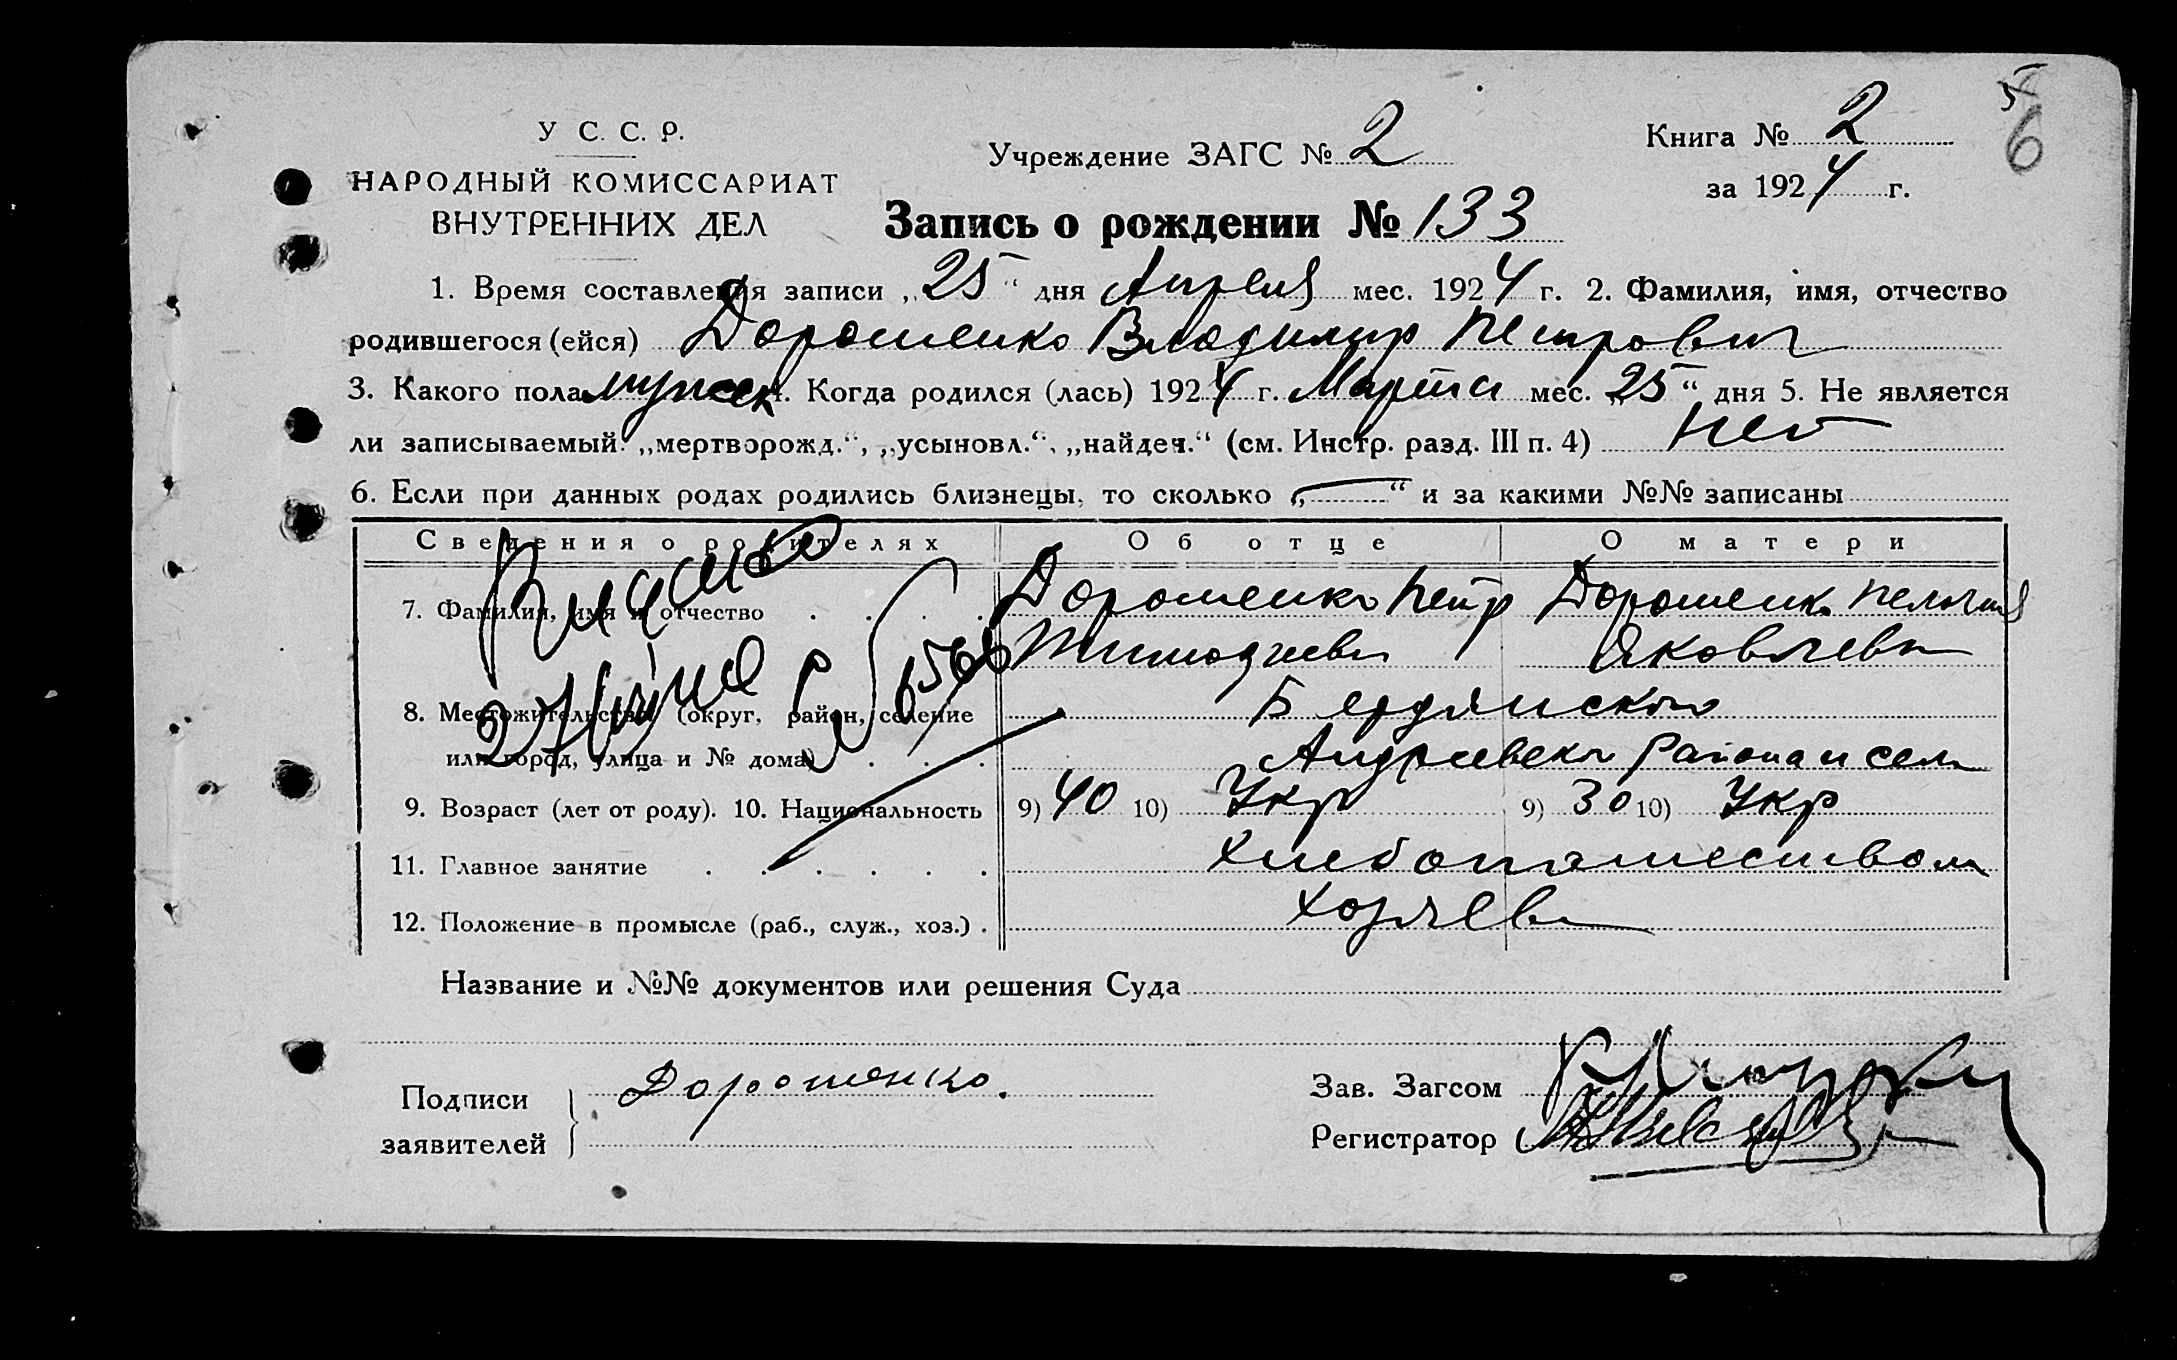 5
6
У С. С. Р.
НАРОДНЫЙ КОМИССАРИАТ
ВНУТРЕННИХ ДЕЛ
Учреждение ЗАГС № 2
Книга № 2
за 1924 г.
Запись о рождении № 133
1. Время составления записи „25“ дня Апреля мес. 1924 г. 2. Фамилия, имя, отчество
родившегося (ейся) Дорошенко Владимир Петрович
3. Какого пола мужск 4. Когда родился (лась) 1924 г. Марта мес. „25“ дня 5. Не является
ли записываемый „мертворожд.“, „усыновл.“, „найден.“ (см. Инстр. разд. III п. 4) Нет
6. Если при данных родах родились близнецы, то сколько „—“ и за какими №№ записаны
Сведения о родителях Об отце О матери
7. Фамилия, имя и отчество . . . . Дорошенко Петр Дорошенко Пелагия
Яковлевн
8. Местожительство (округ, район, селение Бердянского
или город, улица и № дома) . . . Андреевско района и села
9. Возраст (лет от роду). 10. Национальность 9) 40 10) Укр 9) 30 10) Укр
11. Главное занятие . . . . . . Хлебопашеством
12. Положение в промысле (раб., служ., хоз.) . Хозяев
Название и №№ документов или решения Суда
Подписи
заявителей
Дорошенко.
Зав. Загсом
Регистратор